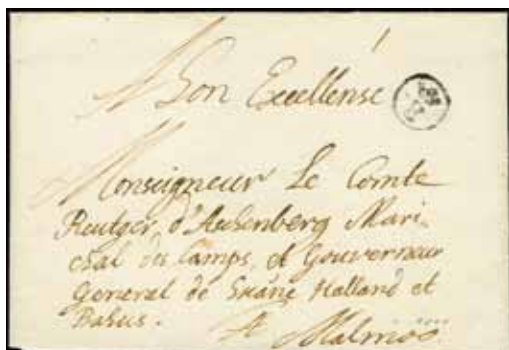 A Son Excellense
Monseigneur Le Comte
Reutger, d'Aschenberg Mari-
chal du Camps, et Gouverneur
General de Skane Halland et
Bahus.
A Malmöö